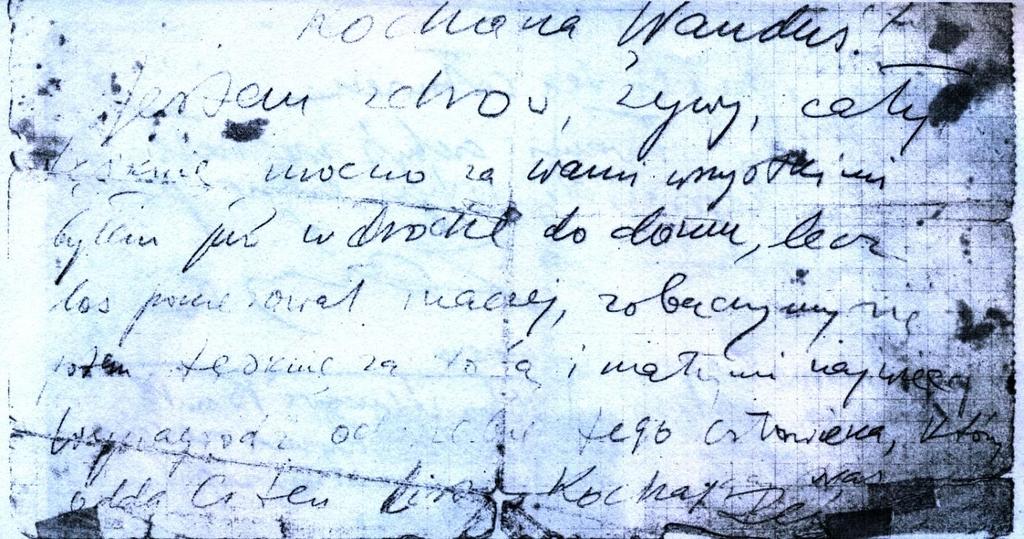 Kochana Wanduś!
Jestem zdrów, żywy, cały
tęsknię mocno za wami wszystkimi
byłem już w drodze do domu, lecz
los pokierował inaczej, zobaczymy się
potem tęsknię za tobą i małymi najwięcej
wynagrodź od siebie tego człowieka, który
odda Ci ten list Kochający was